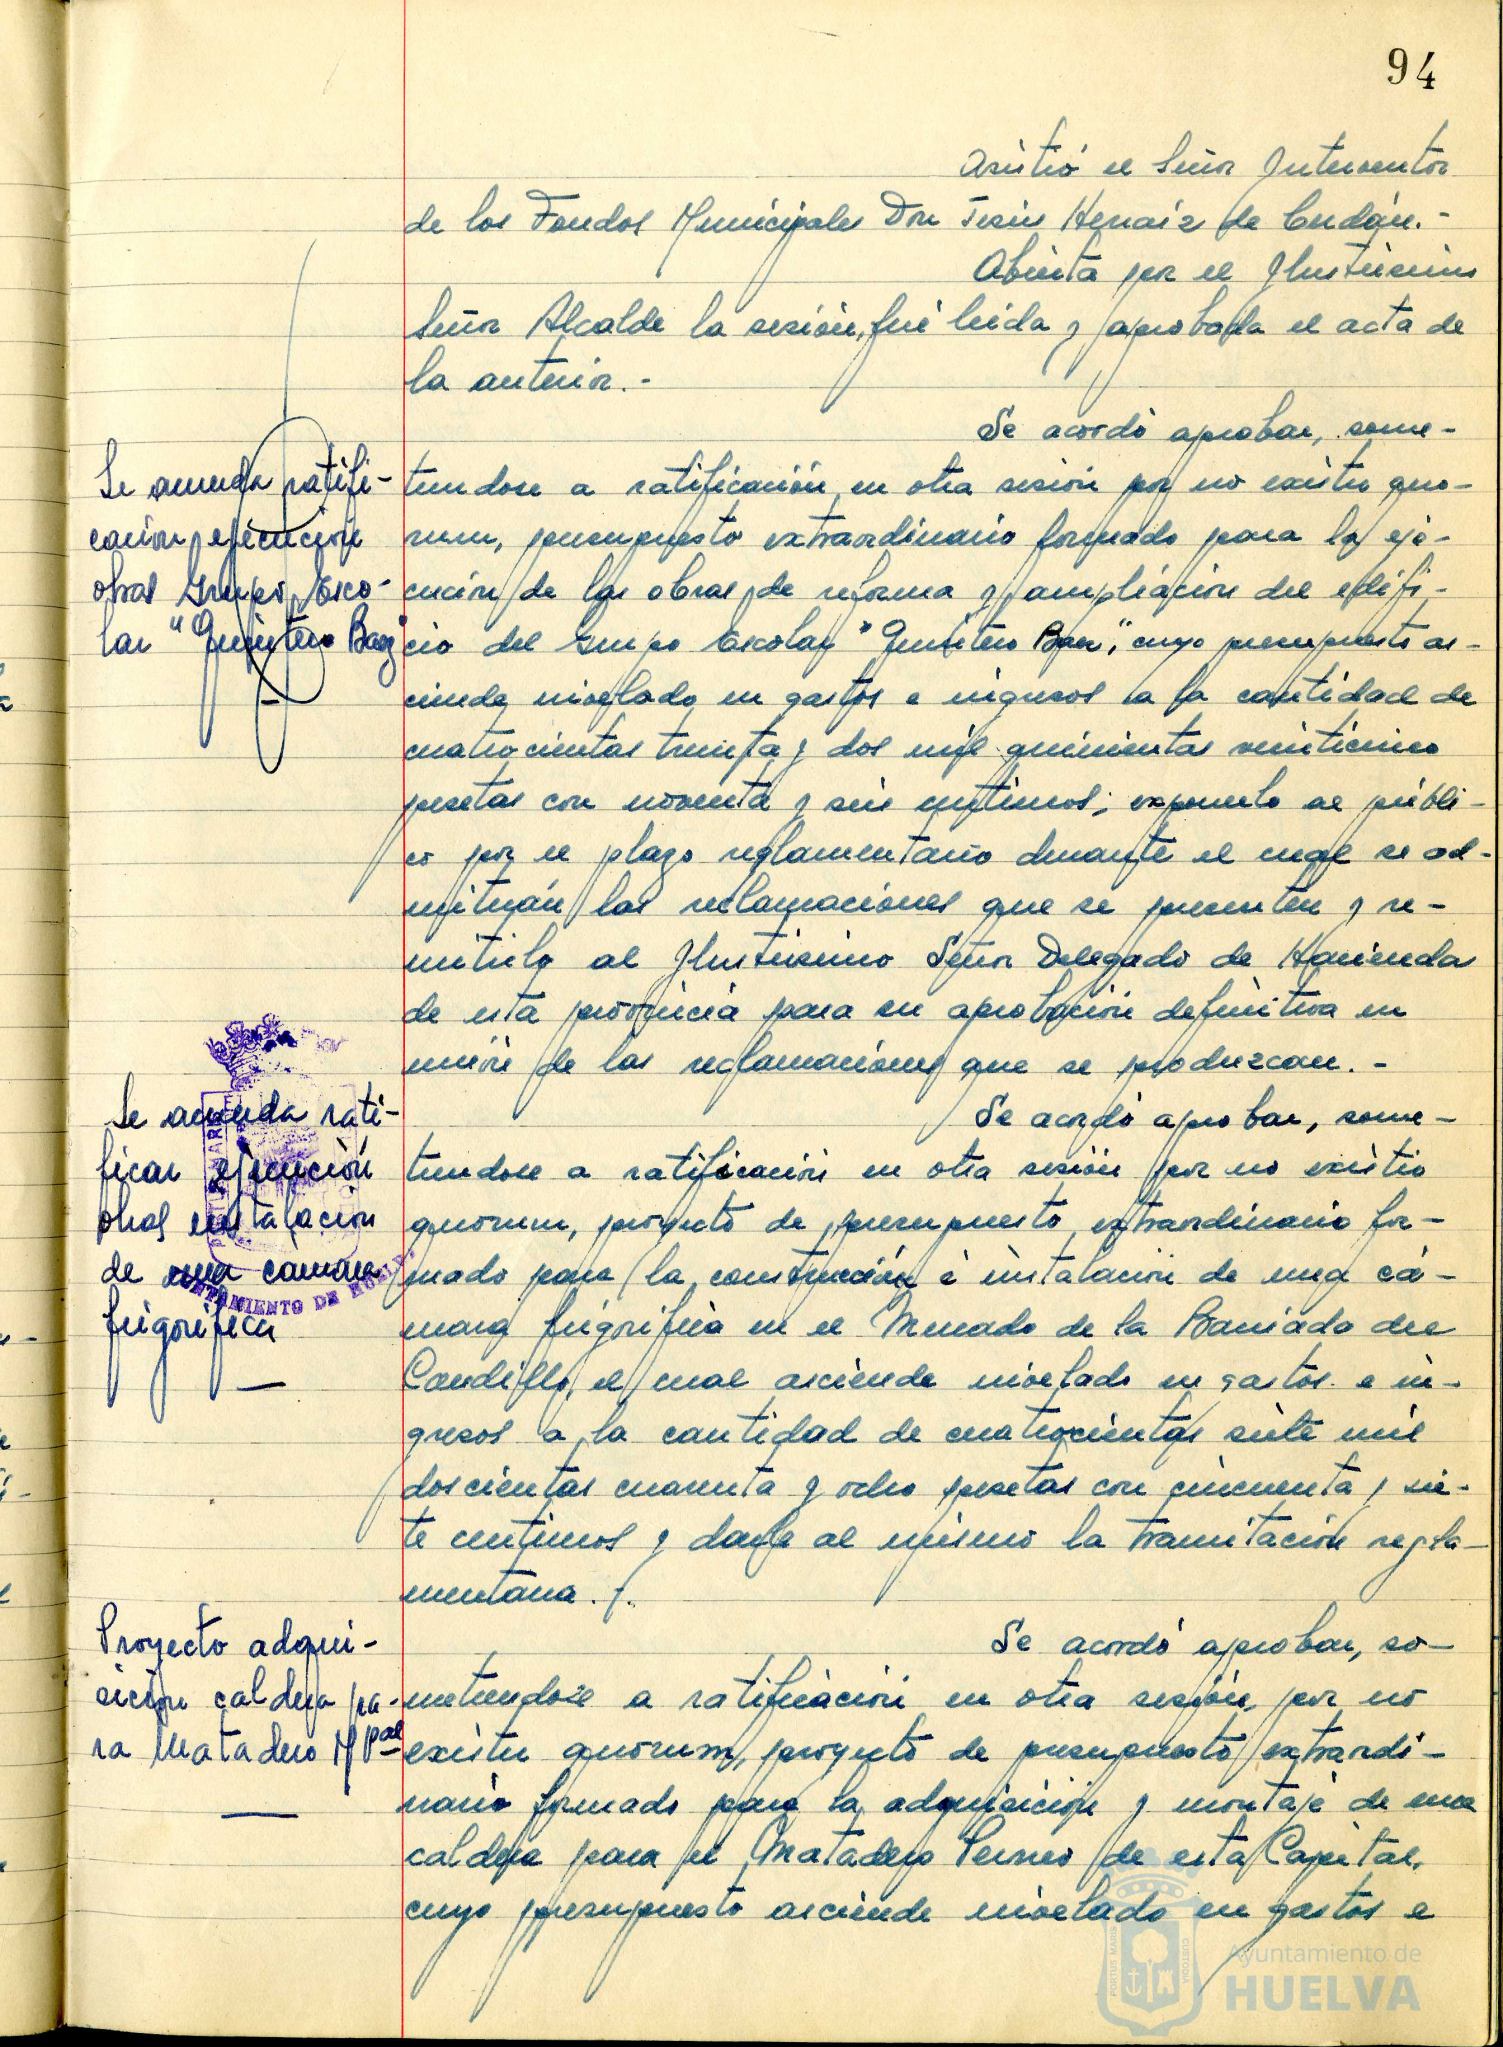 94
Asistió el Señor Interventor
de los Fondos Municipales Don Jesús Hernáiz de
Abierta por el Ilustrísimo
Señor Alcalde la sesión, fué leida y aprobada el acta de
la anterior.-
Se acordó aprobar, some-
Se acuerda ratifi-
cación ejecución
obras Grupo Esco-
lar "Quintero Baez"
tiendose a ratificación en otra sesión por no existir quo-
rum, presupuesto extraordinario formado para la eje-
cución de las obras de reforma y ampliación del edifi-
cio del Grupo Escolar "Quintero Baez", cuyo presupuesto as-
ciende nivelado en gastos e ingresos a la cantidad de
cuatrocientas treinta y dos mil quinientas veinticinco
pesetas con noventa y seis centimos; exponerlo al públi-
co por el plazo reglamentario durante el cual se ad-
mitirán las reclamaciones que se presenten y re-
mitirlo al Ilustrisimo Señor Delegado de Hacienda
de esta provincia para su aprobación definitiva en
unión de las reclamaciones que se produzcan.-
Se acordó aprobar, some-
Se acuerda rati-
ficar ejecución
obras instalación
de una camara
frigorifica
AYUNTAMIENTO DE HUELVA
tiendose a ratificación en otra sesión por no existir
quorum, proyecto de presupuesto extraordinario for-
mado para la construcción é instalación de una cá-
mara frigorifica en el Mercado de la Barriada del
Caudillo, el cual asciende nivelado en gastos e in-
gresos a la cantidad de cuatrocientas siete mil
doscientas cuarenta y ocho pesetas con cincuenta y sie-
te centimos y darle al mismo la tramitación regla-
mentaria.-
Se acordó aprobar, so-
Proyecto adqui-
sición caldera pa-
ra Matadero Mpal
metiendose a ratificación en otra sesión, por no
existir quorum, proyecto de presupuesto extraordi-
nario formado para la adquisición y montaje de una
caldera para el Matadero de esta Capital,
cuyo presupuesto asciende nivelado en gastos e
PORTUS MARIS
CUSTODIA
Ayuntamiento de
HUELVA